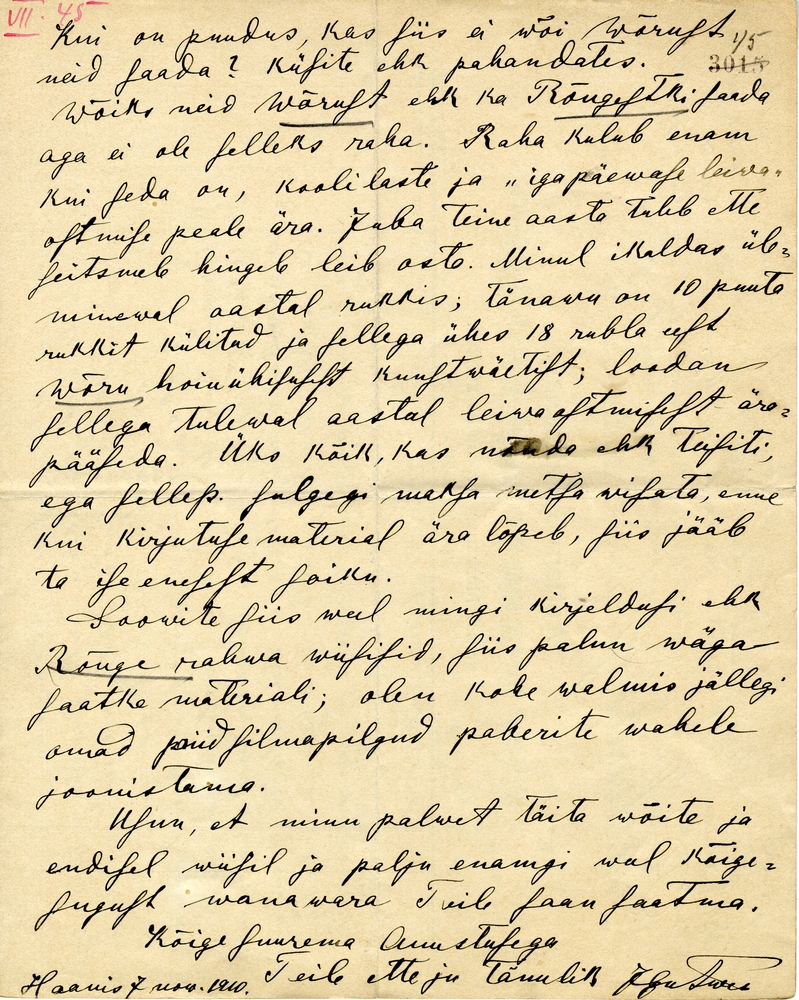 VII. 45
Kui on puudus, kas siis ei wõi Wõrust
1/5
3015
neid saada? küsite ehk pahandates.
Wõiks neid Wõrust ehk ka Rõngestki saada
aga ei ole selleks raha. Raha kulub enam
kui seda on, koolilaste ja „igapäewase leiwa"
ostmise peale ära. Juba teine aasta tuleb ette
seitsmele hingele leib osta. Minul ikaldas üle-
minewal aastal rukkis; tänawu on 10 puuta
rukkit külitud ja sellega ühes 18 rubla eest
Wõru hoiuühisusest kunstwäetist; loodan
sellega tulewal aastal leiwaostmisest ära-
pääseda. Üks kõik, kas nõnda ehk teisiti,
ega selleps. sulgegi maksa metsa wisata, enne
kui kirjutuse material ära lõpeb, siis jääb
ta ise enesest soiku.
Soowite siis weel mingi kirjeldusi ehk
Rõuge rahwa wiisisid, siis palun wäga
saatke materiali; olen kohe walmis jällegi
omad silmapilgud paberite wahele
joonistama.
Usun, et minu palwet täita wõite ja
endisel wiisil ja palju enamgi weel kõige-
sugust wanawara Teile saan saatma.
Kõige suurema Auustusega
Haanis 7 now. 1910. Teile ette ju tänulik